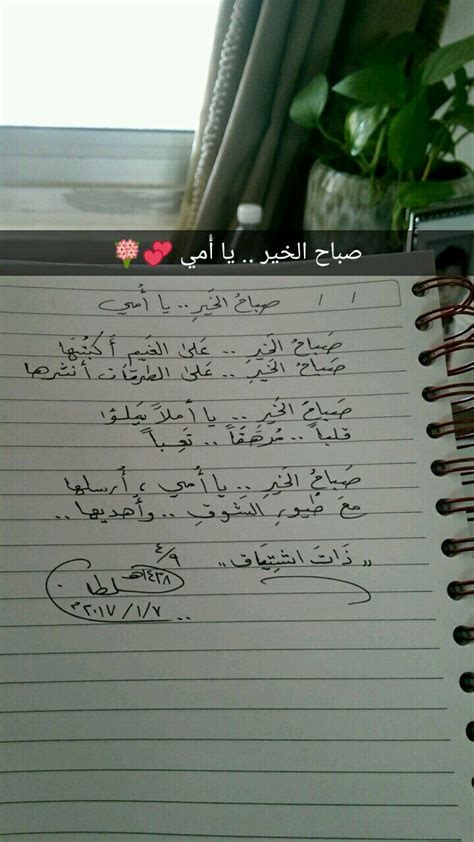 صباح الخير .. يا أمي 💞💐
صباحُ الخَيرِ .. يا أُمي
صَباحُ الخَيرِ .. عَلى الغَيمِ أَكتُبُهَا
صَباحُ الخَيرِ .. عَلى الطرقَات أنثرها
صَباحُ الخَيرِ .. يا أملاً يَملؤا
قلباً .. مُرهَقَاً .. تَعِباً
صَباحُ الخَيرِ .. يا أُمي ، أُرسلها
مَعَ طُيورِ الشَوقِ .. وأُهديها ..
,, ذَاتَ اشتِيَاق ,,
٤/٩
١٤٣٨هـ
سلطان
٢٠١٧/١/٧م